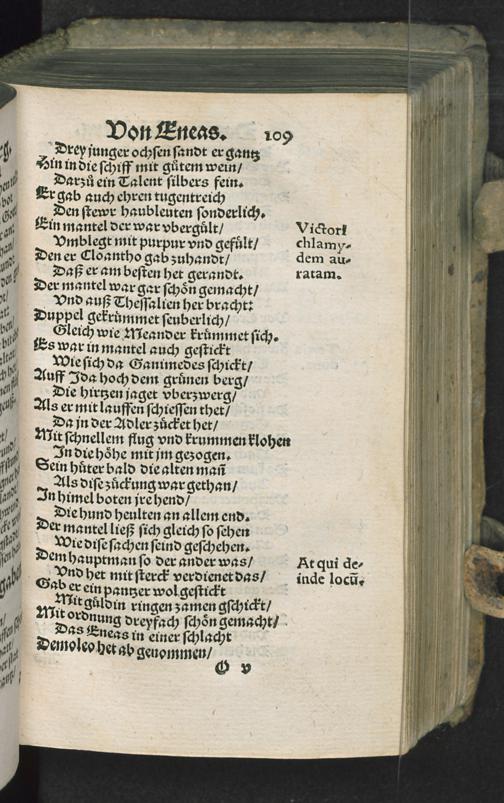 Von Eneas. 109
Drey junger ochsen sandt er gantz
Hin in die schiff mit gůtem wein/
Darzů ein Talent silbers fein.
Er gab auch ehren tugentreich
Den stewr haubleuten sonderlich.
Ein mantel der war vbergült/
Vmblegt mit purpur vnd gefült/
Den er Cloantho gab zuhandt/
Daß er am besten het gerandt.
Der mantel war gar schön gemacht/
Vnd auß Thessalien her bracht:
Duppel gekrümmet seuberlich/
Gleich wie Meander krümmet sich.
Es war in mantel auch gestickt
Wie sich da Ganimedes schickt/
Auff Ida hoch dem grünen berg/
Die hirtzen jaget vberzwerg/
Als er mit lauffen schiessen thet/
Da jn der Adler zücket het/
Mit schnellem flug vnd krummen klohen
In die höhe mit jm gezogen.
Sein hüter bald die alten mañ
Als dise zückung war gethan/
In himel boten jre hend/
Die hund heulten an allem end.
Der mantel ließ sich gleich so sehen
Wie dise sachen seind geschehen.
Dem hauptman so der ander was/
Vnd het mit sterck verdienet das/
Gab er ein pantzer wol gestickt
Mit güldin ringen zamen gschickt/
Mit ordnung dreyfach schön gemacht/
Das Eneas in einer schlacht
Demoleo het ab genommen/
O v
Victori
chlamy-
dem au-
ratam.
At qui de-
inde locũ.